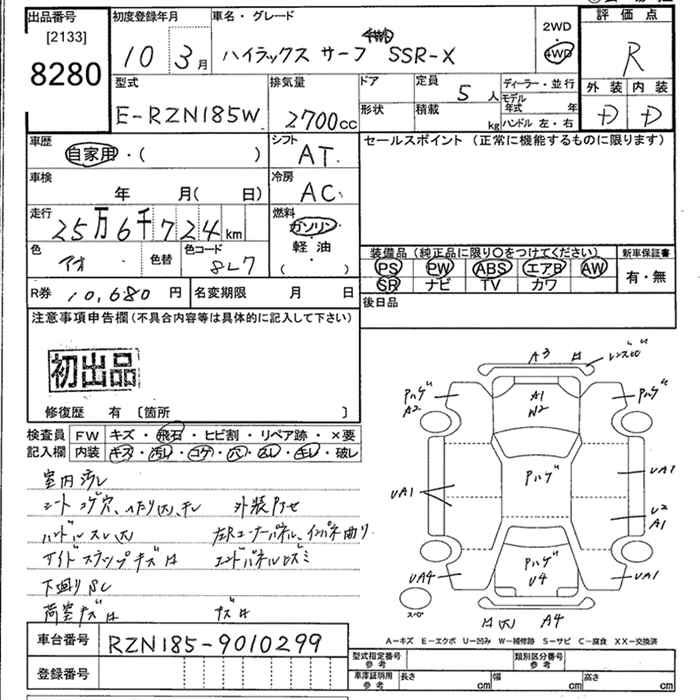 出品番号 初度登録年月 車名・グレード 2WD 評価点
[2133] 8280 10 3月 ハイラックス サーフ 4WD SSR-X 4WD R
型式 排気量 ドア 定員 5人 ディーラー・並行 外装 内装
E-RZN185W 2700cc 形状 積載 kg モデル年式 年 ハンドル 左・右 D D
車歴 自家用・( ) シフト AT セールスポイント(正常に機能するものに限ります)
車検 年 月(日) 冷房 AC
走行 25万6千724km 燃料 ガソリン 軽油 ( )
色 アオ 色替 色コード 8L7
装備品(純正品に限り○をつけてください) 新車保証書
PS PW ABS エアB AW 有・無
SR ナビ TV カワ
R券 10,680円 名変期限 月 日 後日品
注意事項申告欄(不具合内容等は具体的に記入して下さい)
初出品
修復歴 有 [箇所 ]
検査員 FW キズ・飛石・ヒビ割・リペア跡・×要
記入欄 内装 キズ・汚レ・コゲ・穴・スレ・キレ・破レ
室内汚レ
シート コゲ穴
ハンドルスレ大
サイドステップキズ
下廻りS
荷室キズ
キズ
A3
Pハゲ A2 A1 W2 Pハゲ
UA1 Pハゲ UA1
U2 A1
UA4 Pハゲ U4 UA1
スペア
A4
A-キズ E-エクボ U-凹み W-補修跡 S-サビ C-腐食 XX-交換済
車台番号 RZN185-9010299
型式指定番号 参考 類別区分番号 参考
登録番号 車庫証明用 参考 長さ cm 幅 cm 高さ cm